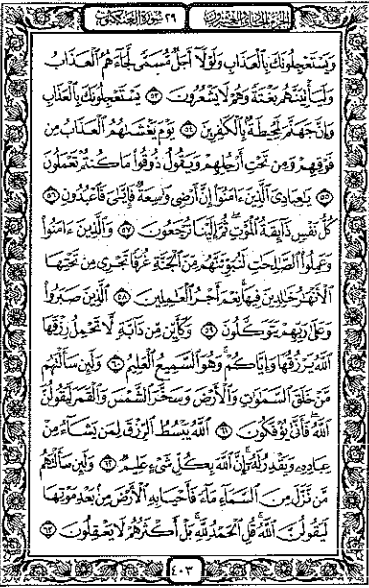 الجزء الحادي والعشرون ٢٩ سورة العنكبوت
وَيَسْتَعْجِلُونَكَ بِالْعَذَابِ وَلَوْلَا أَجَلٌ مُّسَمًّى لَّجَاءَهُمُ الْعَذَابُ
وَلَيَأْتِيَنَّهُم بَغْتَةً وَهُمْ لَا يَشْعُرُونَ ٥٣ يَسْتَعْجِلُونَكَ بِالْعَذَابِ
وَإِنَّ جَهَنَّمَ لَمُحِيطَةٌ بِالْكَافِرِينَ ٥٤ يَوْمَ يَغْشَاهُمُ الْعَذَابُ مِن
فَوْقِهِمْ وَمِن تَحْتِ أَرْجُلِهِمْ وَيَقُولُ ذُوقُوا مَا كُنتُمْ تَعْمَلُونَ
٥٥ يَا عِبَادِيَ الَّذِينَ ءَامَنُوا إِنَّ أَرْضِي وَاسِعَةٌ فَإِيَّايَ فَاعْبُدُونِ ٥٦
كُلُّ نَفْسٍ ذَائِقَةُ الْمَوْتِ ثُمَّ إِلَيْنَا تُرْجَعُونَ ٥٧ وَالَّذِينَ ءَامَنُوا
وَعَمِلُوا الصَّالِحَاتِ لَنُبَوِّئَنَّهُم مِّنَ الْجَنَّةِ غُرَفًا تَجْرِي مِن تَحْتِهَا
الْأَنْهَارُ خَالِدِينَ فِيهَا نِعْمَ أَجْرُ الْعَامِلِينَ ٥٨ الَّذِينَ صَبَرُوا
وَعَلَىٰ رَبِّهِمْ يَتَوَكَّلُونَ ٥٩ وَكَأَيِّن مِّن دَابَّةٍ لَّا تَحْمِلُ رِزْقَهَا
اللَّهُ يَرْزُقُهَا وَإِيَّاكُمْ وَهُوَ السَّمِيعُ الْعَلِيمُ ٦٠ وَلَئِن سَأَلْتَهُم
مَّنْ خَلَقَ السَّمَاوَاتِ وَالْأَرْضَ وَسَخَّرَ الشَّمْسَ وَالْقَمَرَ لَيَقُولُنَّ
اللَّهُ فَأَنَّىٰ يُؤْفَكُونَ ٦١ اللَّهُ يَبْسُطُ الرِّزْقَ لِمَن يَشَاءُ مِنْ
عِبَادِهِ وَيَقْدِرُ لَهُ إِنَّ اللَّهَ بِكُلِّ شَيْءٍ عَلِيمٌ ٦٢ وَلَئِن سَأَلْتَهُم
مَّن نَّزَّلَ مِنَ السَّمَاءِ مَاءً فَأَحْيَا بِهِ الْأَرْضَ مِن بَعْدِ مَوْتِهَا
لَيَقُولُنَّ اللَّهُ قُلِ الْحَمْدُ لِلَّهِ بَلْ أَكْثَرُهُمْ لَا يَعْقِلُونَ ٦٣
٤٠٣